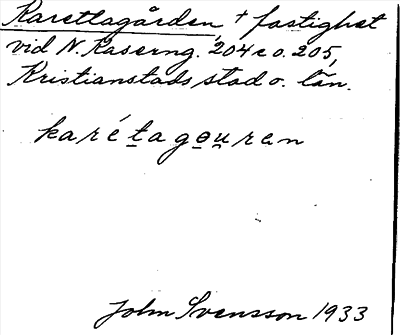 Karettagården, + fastighet
vid N. Kaserng. 204 c o. 205,
Kristianstads stad o. län.
karétagəu̯ren
John Svensson 1933